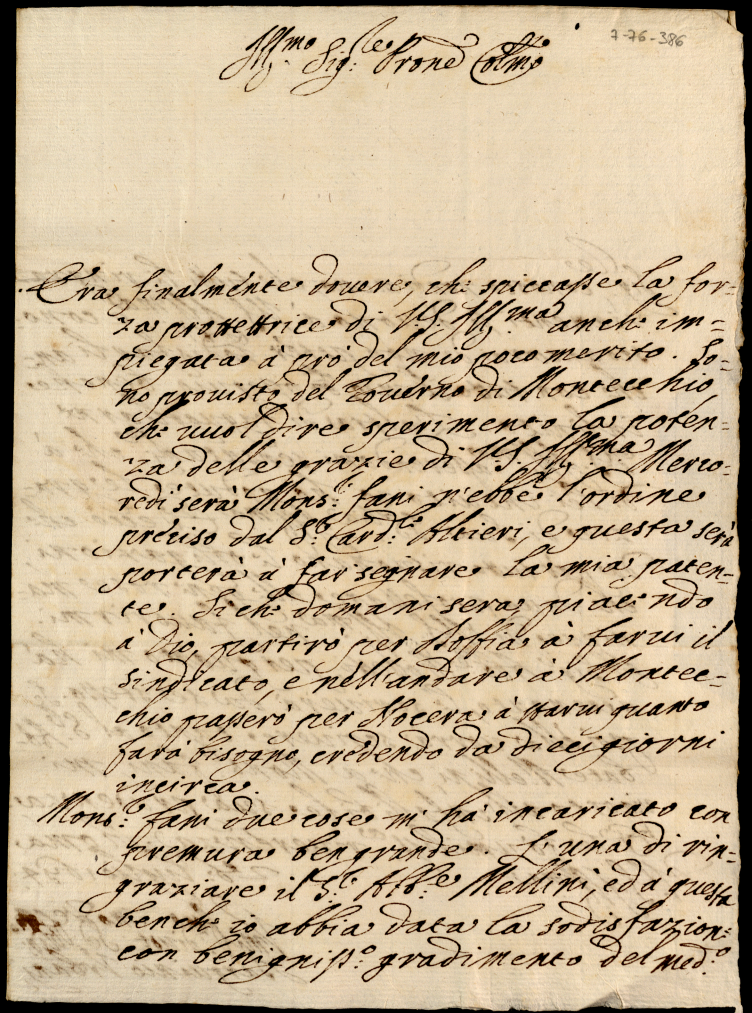 7-76-386
Ill.mo Sig.re Prone Colmo
Era finalmente douere, che spiccasse la for-
za prottettrice di V.S. Ill.ma anche im-
piegata à prò del mio poco merito. So-
no prouisto del Gouerno di Montecchio,
che uuol dire sperimento la poten-
za delle grazie di V.S. Ill.ma Merco-
redì serà Mons.r fani n'ebbe l'ordine
preciso dal S.r Card.le Altieri, e questa serà
porterà à far segnare la mia paten-
te. Siche domani sera, piacendo
à Dio, partirò per Roffia à farui il
sindicato, e nell'andare à Montec-
chio passerò per Nocera à starui quanto
farà bisogno, credendo da dieci giorni
incirca.
Mons.r fani due cose m'hà incaricato con
premura ben grande. L'una di rin-
graziare il S.r Abb.e Mellini, ed à questa
benche io abbia data la sodisfazione
con benigniss.o gradimento del med.o